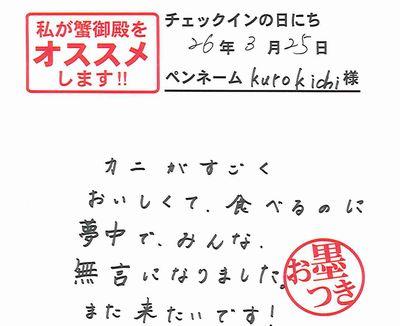 私が蟹御殿を
オススメ
します!!
チェックインの日にち
26年 3月 25日
ペンネーム kurokichi 様
カニがすごく
おいしくて、食べるのに
夢中で、みんな、
無言になりました。
また来たいです!
お墨つき